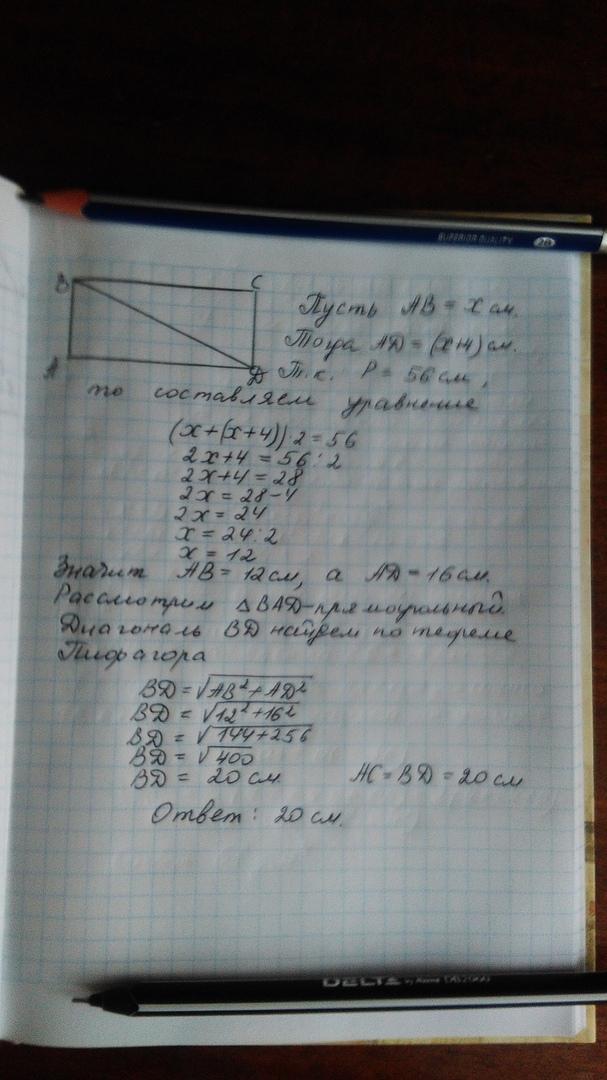 SUPERIOR QUALITY 2B
B C
Пусть AB = x см.
Тогда AD = (x+4) см.
A D Т.к. P = 56 см,
то составляем уравнение
(x+(x+4))·2=56
2x+4 = 56:2
2x+4 = 28
2x = 28-4
2x = 24
x = 24:2
x = 12
Значит AB = 12 см, а AD = 16 см.
Рассмотрим △BAD-прямоугольный.
Диагональ BD найдем по теореме
Пифагора
BD = √AB²+AD²
BD = √12²+16²
BD = √144+256
BD = √400
BD = 20 см AC = BD = 20 см
Ответ: 20 см.
DELTA by